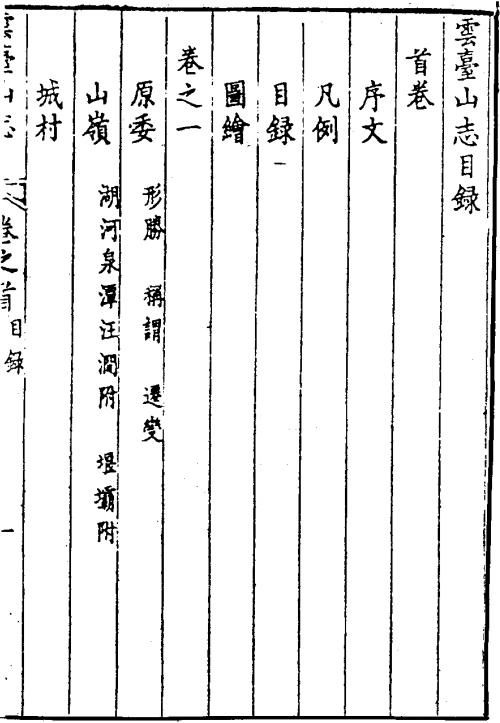 雲臺山志目録
首卷
序文
凡例
目録
圖繪
卷之一
原委 形勝 稱謂 遷變
山嶺 湖河泉潭汪澗附 堰壩附
城村
雲臺山志 卷之首 目録 一